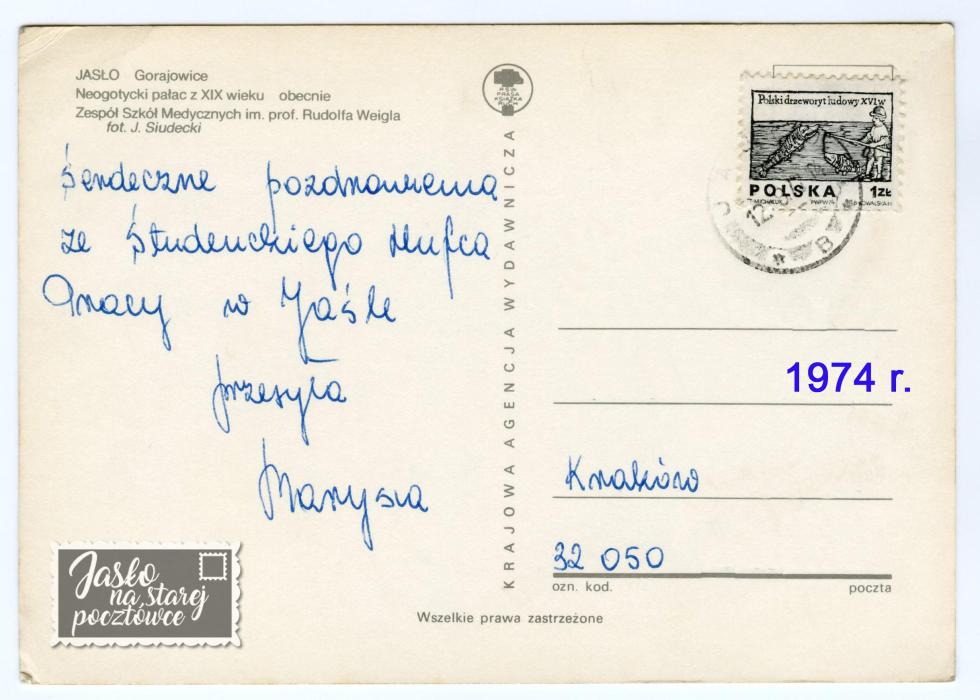 JASŁO Gorajowice
Neogotycki pałac z XIX wieku obecnie
Zespół Szkół Medycznych im. prof. Rudolfa Weigla
fot. J. Siudecki
Serdeczne pozdrowienia
ze Studenckiego Hufca
Pracy w Jaśle
przesyła
Marysia
Jasło
na starej
pocztówce
PSW
PRASA
KSIĄŻKA
RUCH
KRAJOWA AGENCJA WYDAWNICZA
Polski drzeworyt ludowy XVI w
POLSKA 1 ZŁ
T. MICHALUK PWPW 74
12
B
1974 r.
Kraków
32 050
ozn. kod. poczta
Wszelkie prawa zastrzeżone